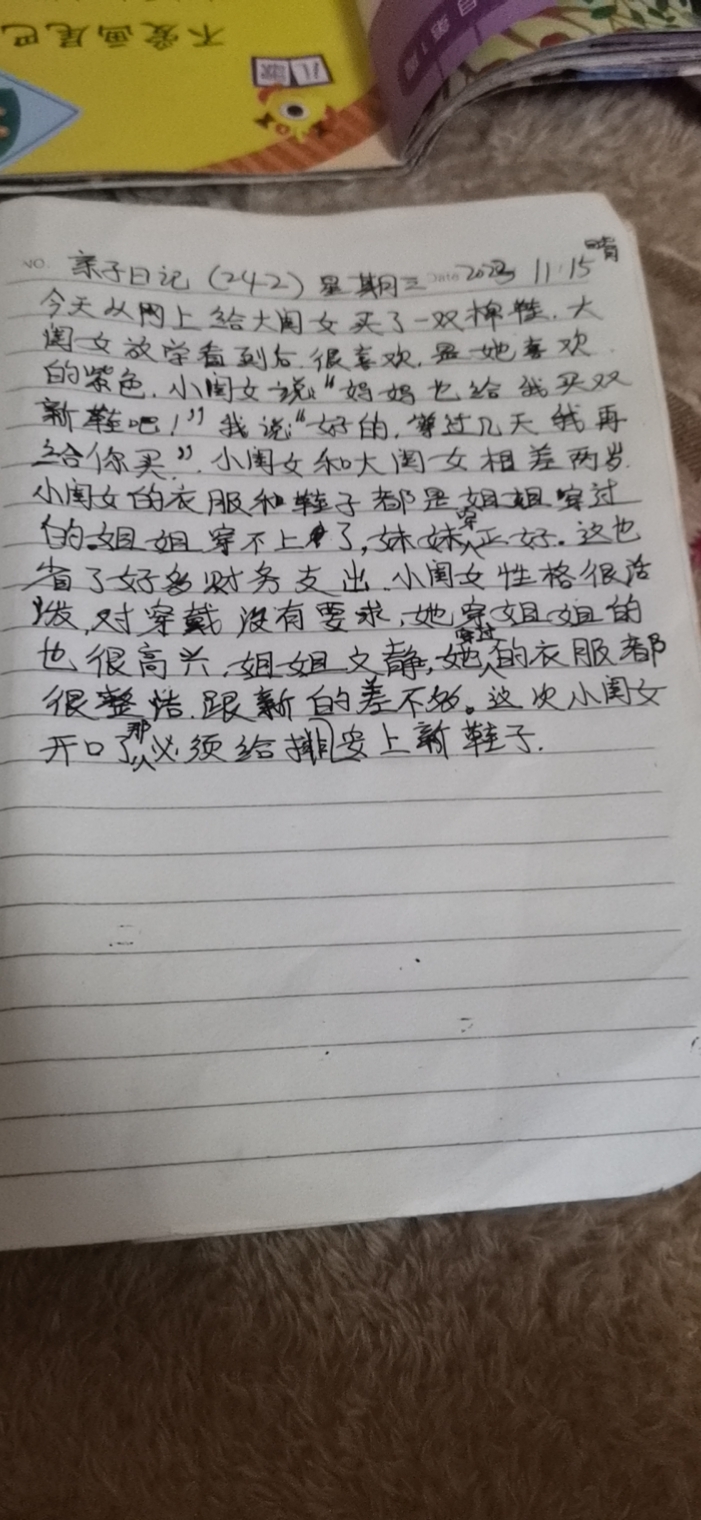 不爱画尾巴
目 第1篇
NO. 亲子日记(242) 星期三 Date 2023 11.15 晴
今天从网上给大闺女买了一双棉鞋.大
闺女放学看到后.很喜欢.是她喜欢
的紫色.小闺女说:“妈妈也给我买双
新鞋吧!”我说:“好的,等过几天我再
给你买”.小闺女和大闺女相差两岁.
小闺女的衣服和鞋子都是姐姐穿过
的.姐姐穿不上了,妹妹穿正好。这也
省了好多财务支出.小闺女性格很活
泼,对穿戴没有要求,她穿姐姐的
也很高兴.姐姐文静,她穿过的衣服都
很整洁.跟新的差不多。这次小闺女
开口了那必须给安排上新鞋子.